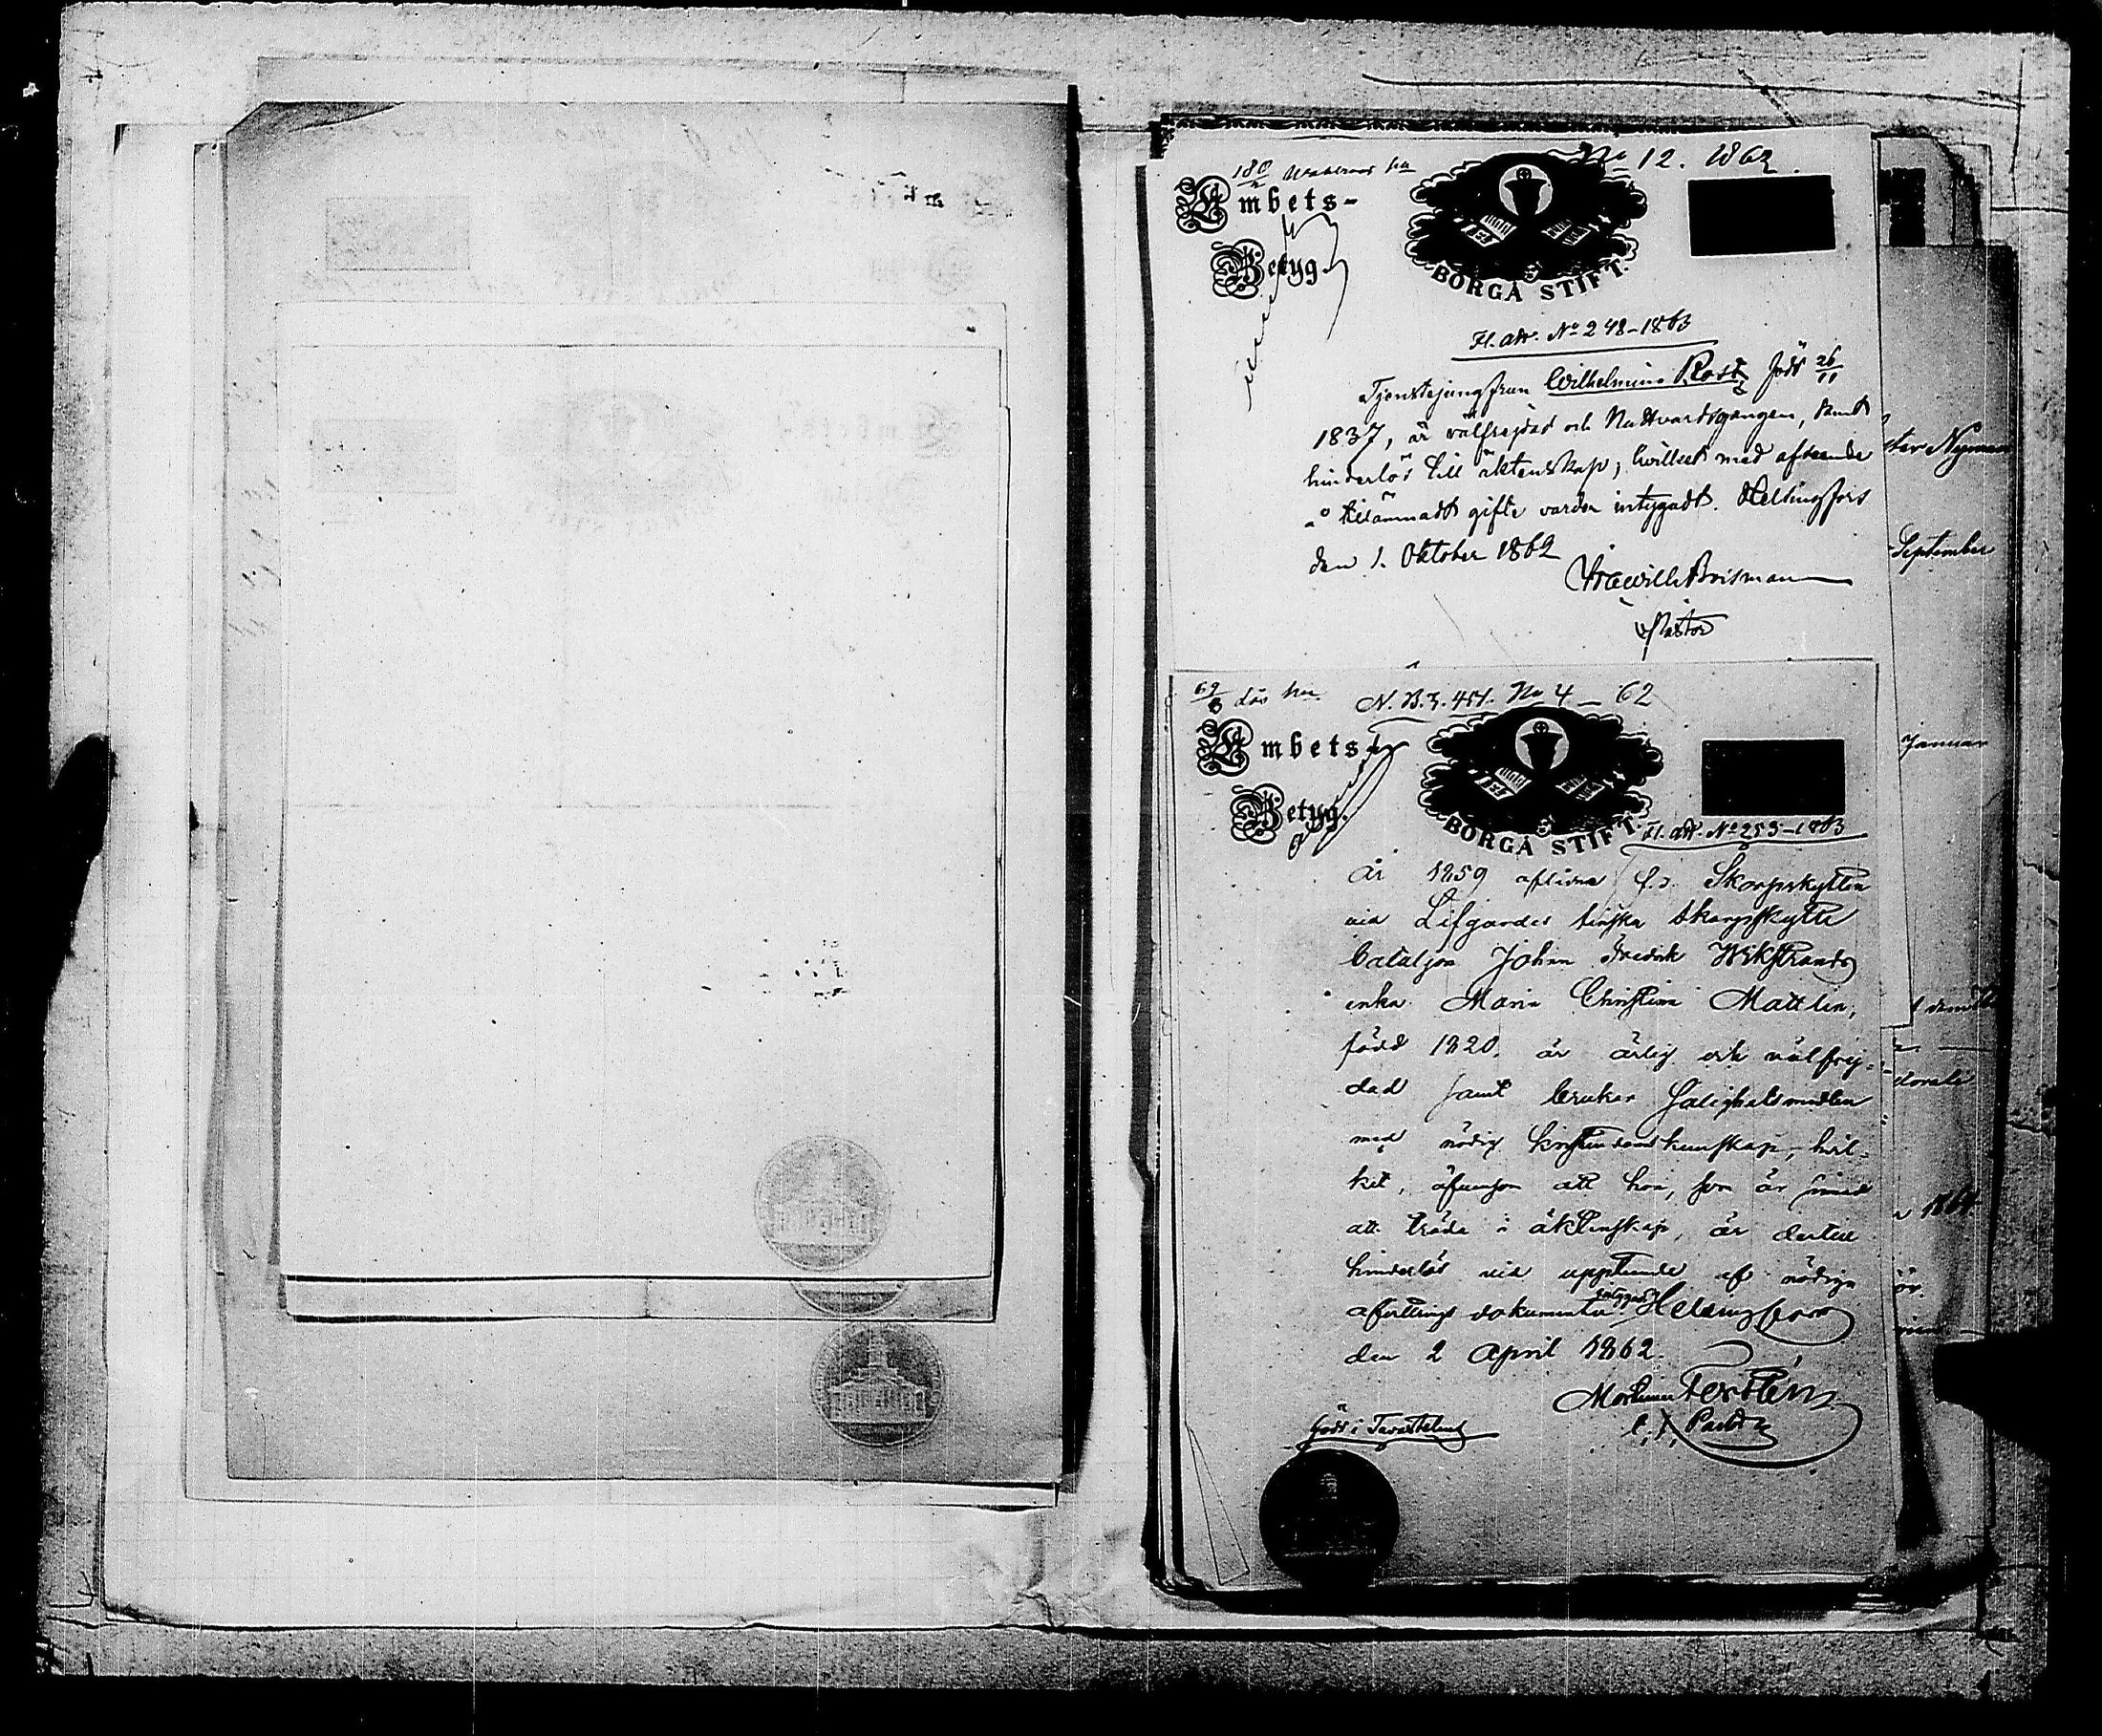 No 12. 1862.
180
Ambets-
Betyg.
BORGÅ STIFT.
Fl. att. No 248-1863
Tjenstejungfrun Wilhelmina Rost, född 26/11
1837, är välfrejdad och Nattvardsgången, samt
hinderlös till äktenskap, hvilket med afseende
å tillämnadt gifte varder intygadt. Helsingfors
den 1. Oktober 1862
Pastor
69
N. B. 3. 451. No 4 - 62
Ambets-
Betyg.
BORGÅ STIFT.
Fl. att. No 253-1863
År 1859 aflidne f.d. Skarpskytten
vid Lifgardes finska skarpskytte
bataljon Johan Fredrik Wikstrands
enka Maria Christina Mattlin,
född 1820. är ärlig och välfrej-
dad samt brukar salighetsmedlen
med nödig kristendomskunskap, hvil-
ket, äfvensom att hon, som är sinnad
att träda i äktenskap, är dertill
hinderlös vid uppteende af nödiga
afvittrings dokumenter intygas. Helsingfors
den 2 April 1862.
Pastor
född i Tavastehus
ster Nyman
September
Januar
1864